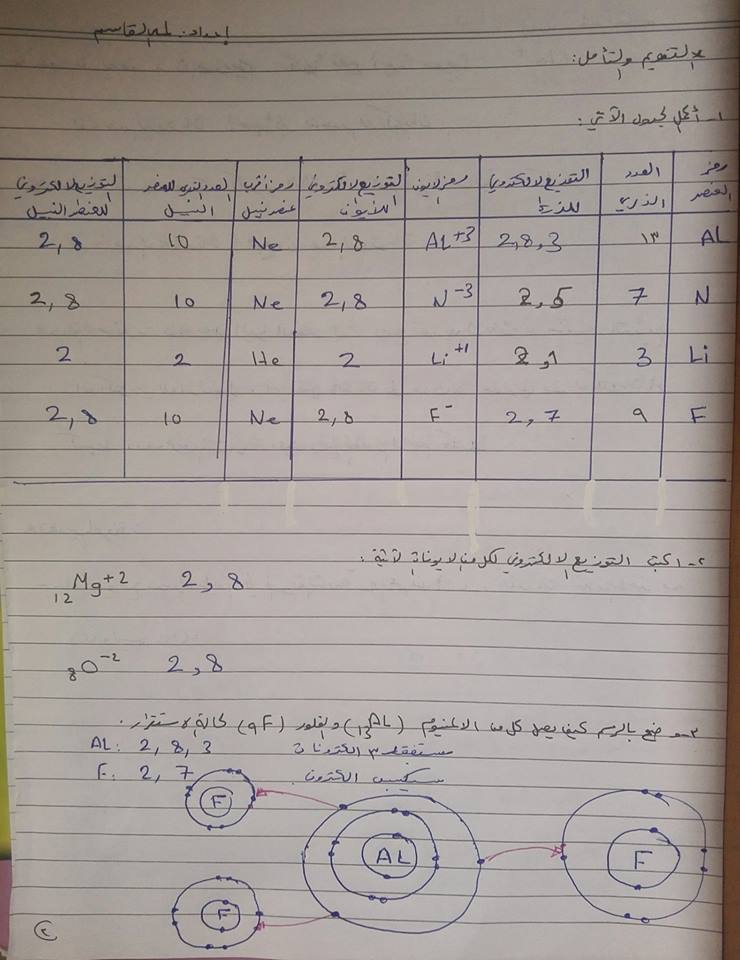 إعداد: لمى القاسم
التقويم والتأمل:
١- أكمل الجدول الآتي:
رمز العنصر | العدد الذري | التوزيع الالكتروني للذرة | رمز الايون | التوزيع الالكتروني للأيون | رمز أقرب عنصر نبيل | العدد الذري للعنصر النبيل | التوزيع الالكتروني للعنصر النبيل
AL | ١٣ | 2,8,3 | AL+3 | 2,8 | Ne | 10 | 2,8
N | 7 | 2,5 | N-3 | 2,8 | Ne | 10 | 2,8
Li | 3 | 2,1 | Li+1 | 2 | He | 2 | 2
F | 9 | 2,7 | F- | 2,8 | Ne | 10 | 2,8
٢- اكتب التوزيع الالكتروني لكل من الايونات الآتية:
12Mg+2 2,8
8O-2 2,8
٣- وضح بالرسم كيف يصل كل من الالمنيوم (13AL) والفلور (9F) لحالة الاستقرار.
AL: 2,8,3 ستفقد ٣ الكترونات
F: 2,7 سيكسب الكترون
F
AL
F
F
٢